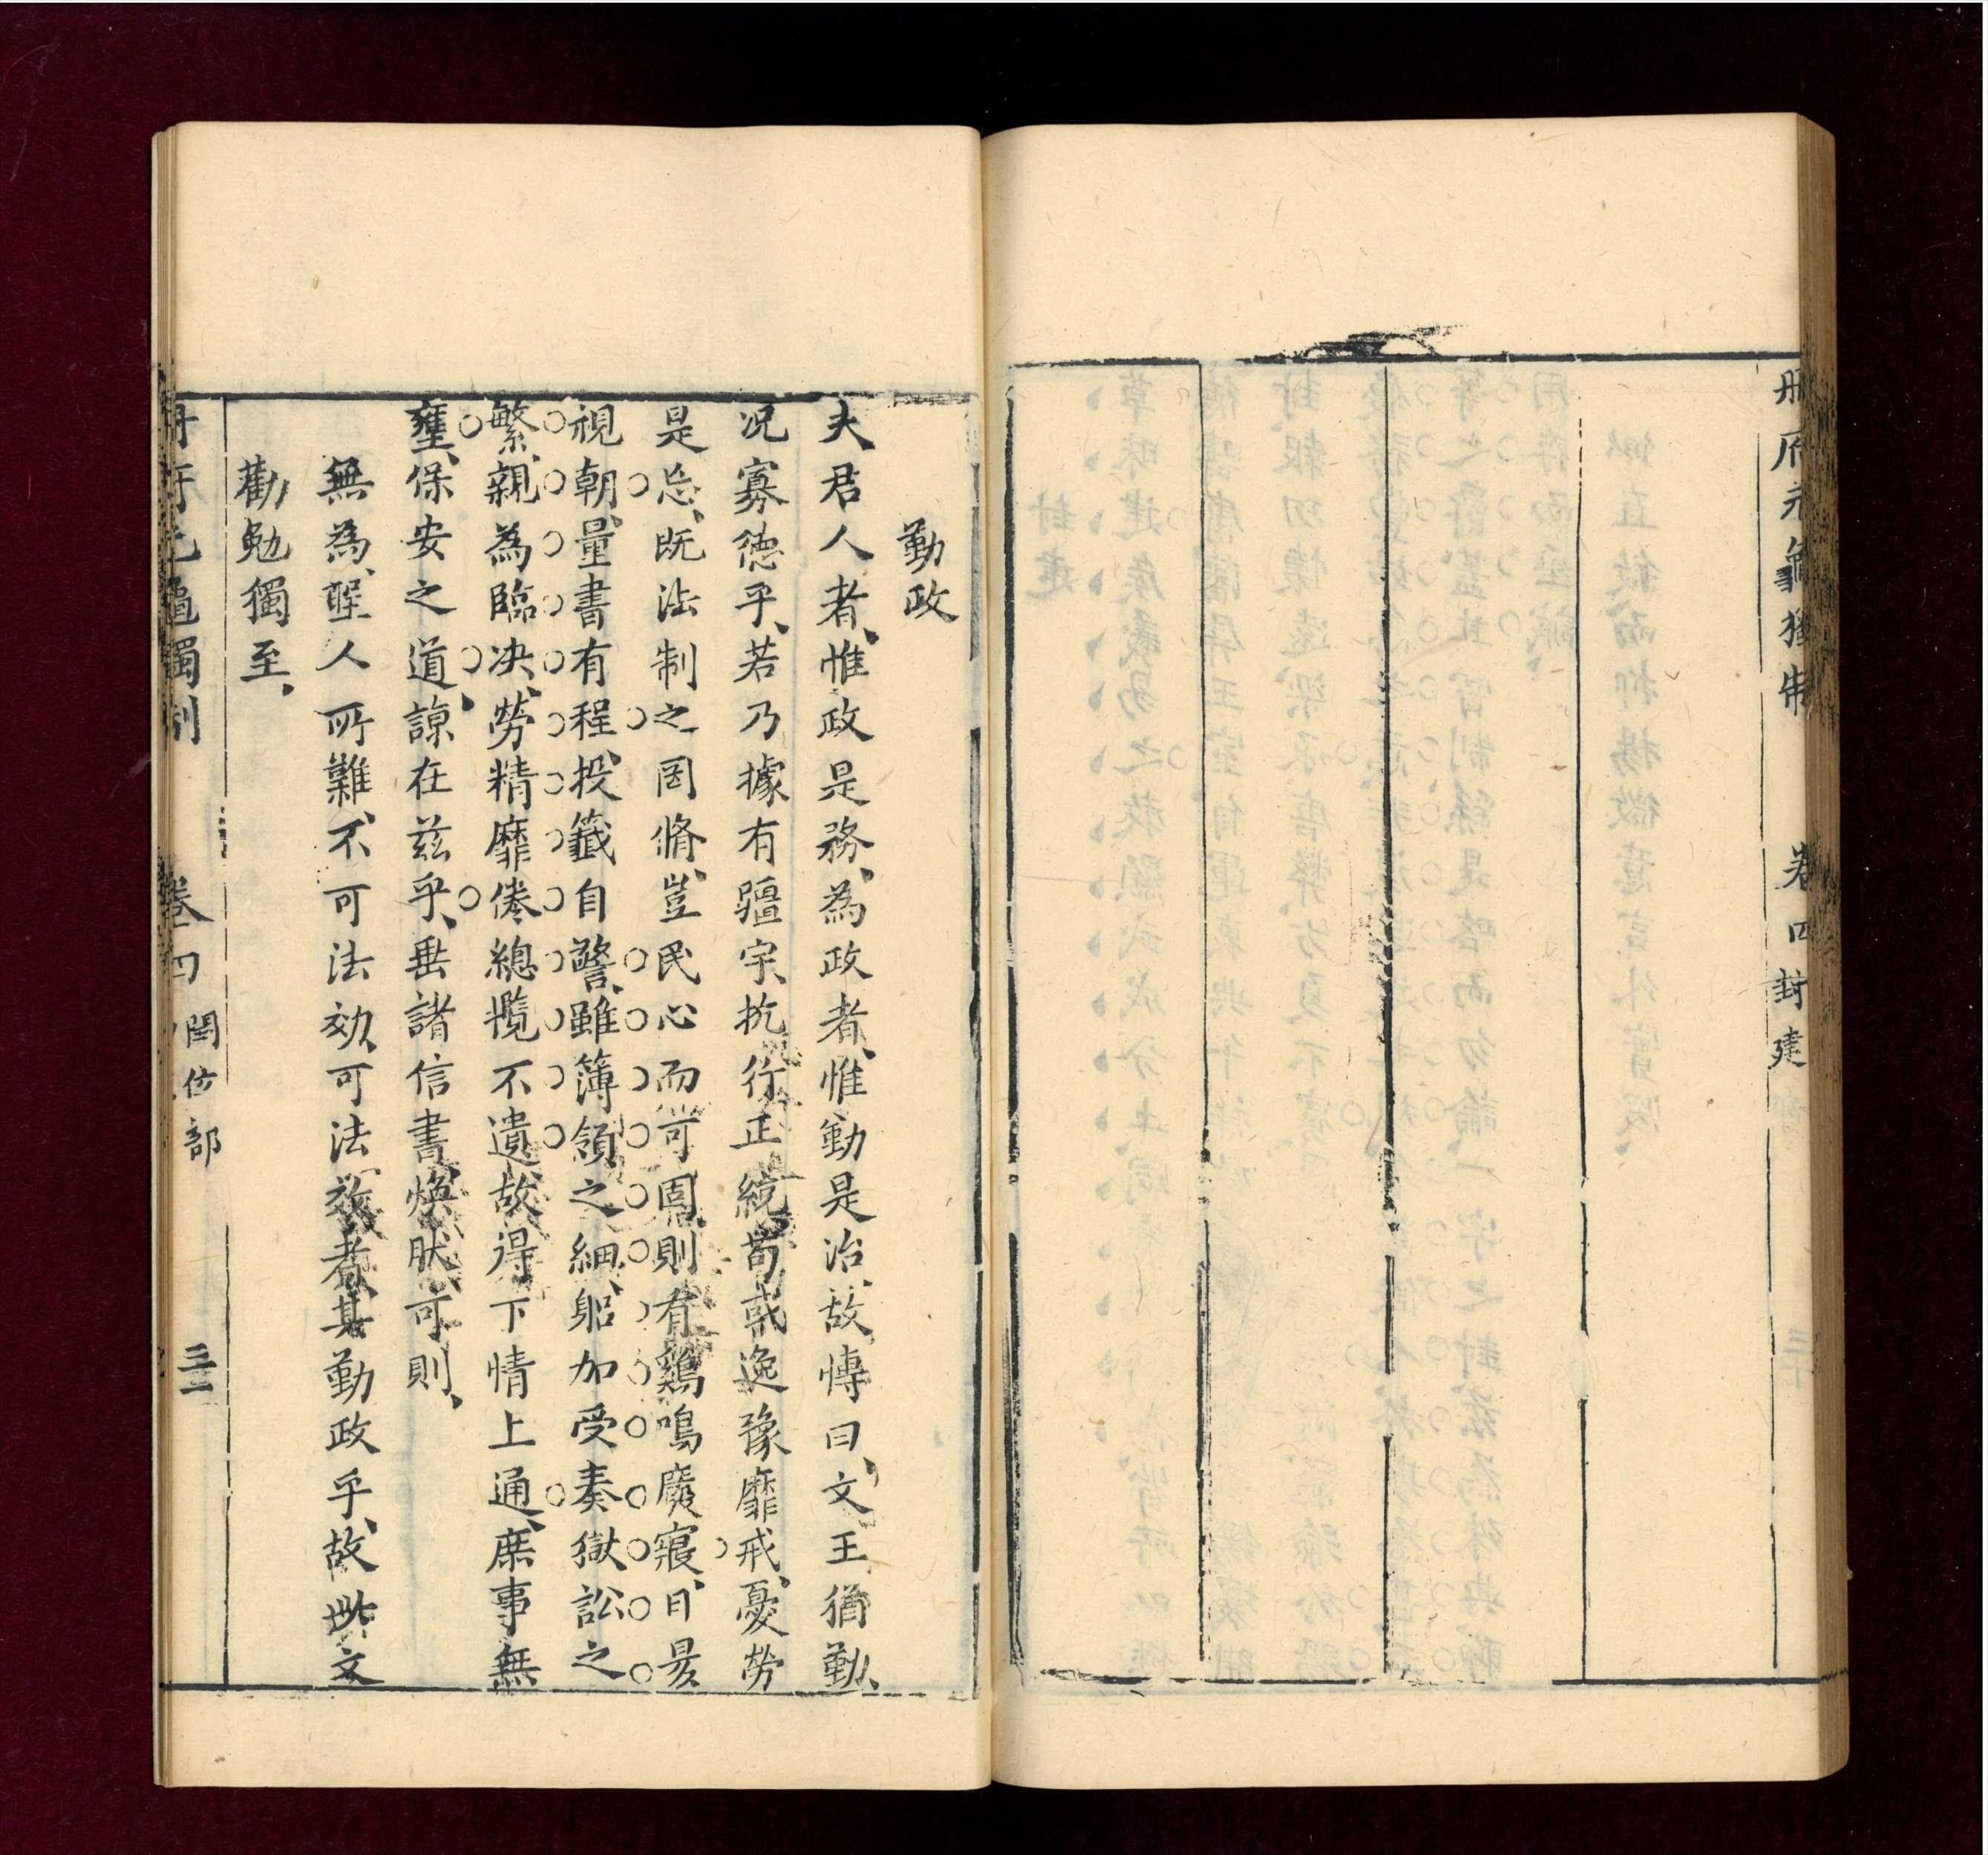 册府元龜獨制 卷四封建
勤政
夫君人者、惟政是務、為政者、惟勤是治、故傳曰、文王猶勤、
况寡德乎、若乃據有疆宇、抗行正統、苟或逸豫靡戒、憂勞
是忘、既法制之罔脩、豈民心而可固、則有鷄鳴廢寢、日昃
視朝、量書有程、投籤自警、雖簿領之細、躬加受奏、獄訟之
繁、親為臨决、勞精靡倦、總攬不遺、故得下情上通、庶事無
壅、保安之道、諒在兹乎、垂諸信書、煥肰可則、
無為、聖人所難、不可法効、可法效者、其勤政乎、故此文
勸勉獨至、
册府元龜獨制 卷四 閏位部 三十一